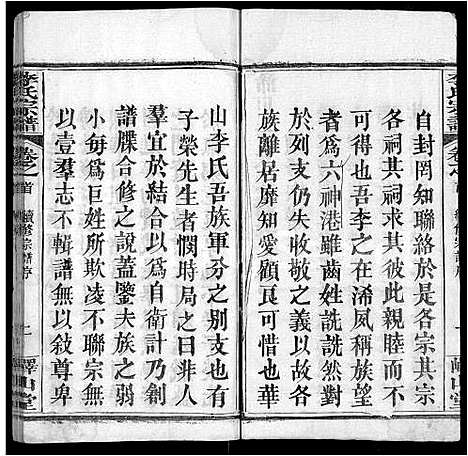 自封罔知聯絡於是各宗其宗
各祠其祠求如彼此親睦而不
可得也吾李之在浠鳳稱族望
者爲六神港雖齒姓詵詵然對
於列支仍失收敬之義以故各
族離居愛顧良
山李氏吾族軍分之別支也有
子榮先生者憫時局之日非人
羣宜於結合以爲自衛計乃創
譜牒合修之說蓋鑒夫族之弱
小每爲巨姓所欺凌不聯宗無
以壹羣志不輯譜無以敘尊卑
李氏宗譜
卷之首
續修宗譜序
二